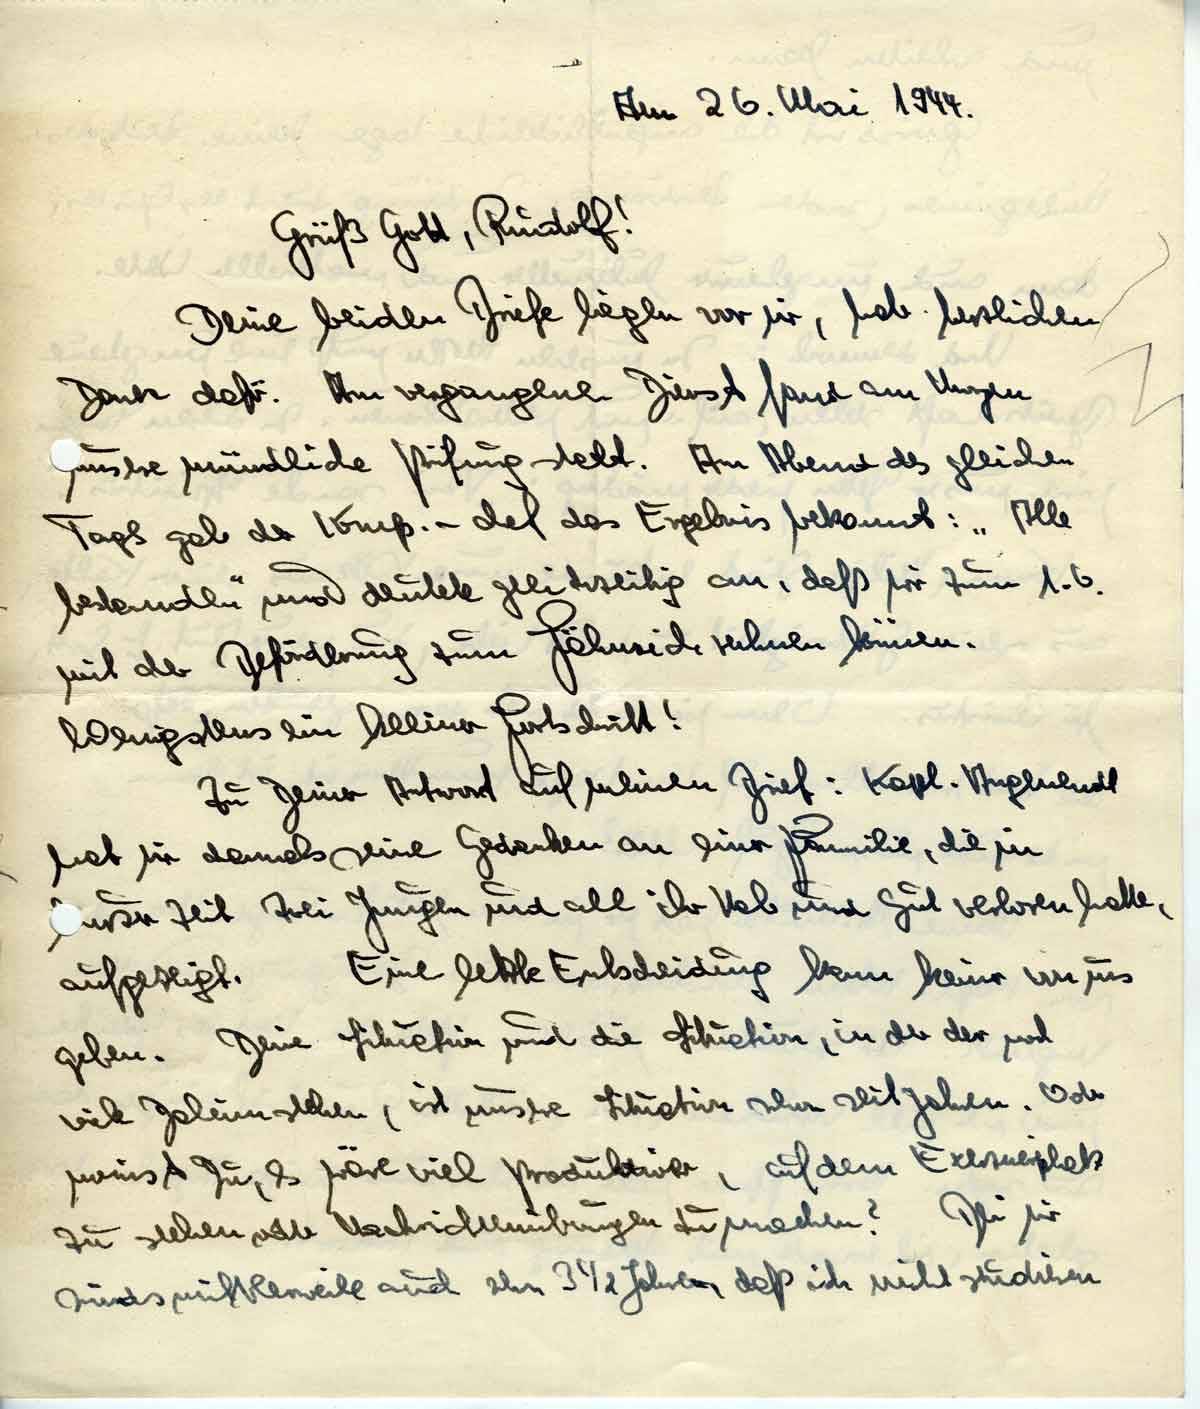 Am 26. Mai 1944.
Grüß Gott, Rudolf!
Deine beiden Briefe liegen vor mir, hab herzlichen
Dank dafür. Am vergangenen Dienst fand am Morgen
unsere mündliche Prüfung statt. Am Abend des gleichen
Tags gab der Komp.-Chef das Ergebnis bekannt: „Alle
bestanden" und deutete gleichzeitig an, daß wir zum 1.6.
mit der Beförderung zum Fähnrich rechnen können.
Wenigstens ein kleiner Fortschritt!
Zu Deiner Antwort auf meinen Brief: Kapl.
hat mir damals seine Gedanken an einer Familie, die in
kurzer Zeit drei Jungen und all ihr Hab und Gut verloren hatte,
aufgezeigt. Eine letzte Entscheidung kann keiner von uns
geben. Deine Situation und die Situation, in der der und
viele daheim stehen, ist unsere Situation schon seit Jahren. Oder
meinst Du, es wäre viel produktiver, auf dem Exerzierplatz
zu stehen oder Nachrichtenübungen zu machen? Bei mir
sinds mittlerweile auch schon 3 1/2 Jahre, daß ich nicht studieren